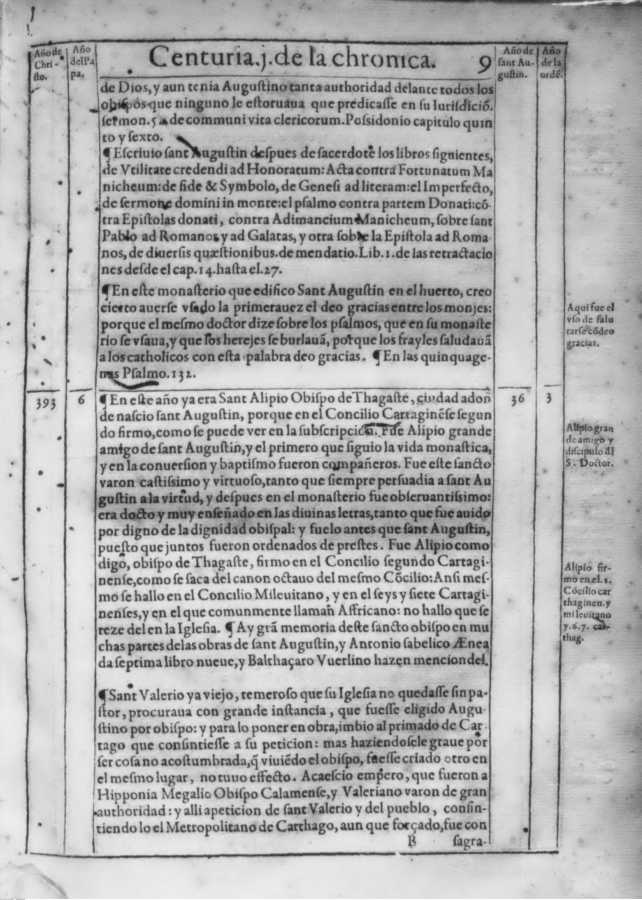 Año de Christo.
Año del Papa,
Centuria.j. de la chronica. 9
Año de sant Augustin.
Año de la ordē.
de Dios, y aun tenia Augustino tanta authoridad delante todos los
obispos que ninguno le estoruaua que predicasse en su iurisdició.
sermon.5 de communi vita clericorum. Possidonio capitulo quin
to y sexto.
¶ Escriuio sant Augustin despues de sacerdote los libros siguientes,
de Vtilitate credendi ad Honoratum: Acta contra Fortunatum Ma
nicheum: de fide & Symbolo, de Genesi ad literam: el Imperfecto,
de sermone domini in monte: el psalmo contra partem Donati: cõ
tra Epistolas donati, contra Adimancium Manicheum, sobre sant
Pablo ad Romanos y ad Galatas, y otra sobre la Epistola ad Roma
nos, de diuersis quæstionibus. de mendatio. Lib. 1. de las retractacio
nes desde el cap. 14. hasta el. 27.
¶ En este monasterio que edifico Sant Augustin en el huerto, creo
cierto auerse vsado la primera uez el deo gracias entre los monjes:
porque el mesmo doctor dize sobre los psalmos, que en su monaste
rio se vsaua, y que los herejes se burlauã, porque los frayles saludauã
a los catholicos con esta palabra deo gracias. ¶ En las quinquage-
nas Psalmo. 132.
Aqui fue el
vso de salu
tarse cõ deo
gracias.
393
6
36
3
¶ En este año ya era Sant Alipio Obispo de Thagaste, ciudad adon
de nascio sant Augustin, porque en el Concilio Cartaginēse segun
do firmo, como se puede ver en la subscripcion. Fue Alipio grande
amigo de sant Augustin, y el primero que siguio la vida monastica,
y en la conuersion y baptismo fueron compañeros. Fue este sancto
varon castissimo y virtuoso, tanto que siempre persuadia a sant Au
gustin a la virtud, y despues en el monasterio fue obseruantissimo:
era docto y muy enseñado en las diuinas letras, tanto que fue auido
por digno de la dignidad obispal: y fuelo antes que sant Augustin,
puesto que juntos fueron ordenados de prestes. Fue Alipio como
digo, obispo de Thagaste, firmo en el Concilio segundo Cartagi-
nense, como se saca del canon octauo del mesmo Cõcilio: Ansi mes-
mo se hallo en el Concilio Mileuitano, y en el seys y siete Cartagi-
nenses, y en el que comunmente llaman Affricano: no hallo que se
reze del en la Iglesia. ¶ Ay grã memoria deste sancto obispo en mu
chas partes de las obras de sant Augustin, y Antonio sabelico Ænea
da septima libro nueue, y Balthaçaro Vuerlino hazen mencion del.
Alipio gran
de amigo y
discipulo dl
S. Doctor.
Alipio fir-
mo en el. 2.
Cõcilio car
thaginen. y
mileuitano
y. 6. 7. car-
thag.
¶ Sant Valerio ya viejo, temeroso que su Iglesia no quedasse sin pa-
stor, procuraua con grande instancia, que fuesse eligido Augu-
stino por obispo: y para lo poner en obra, imbio al primado de Car
tago que consintiesse a su peticion: mas haziendosele graue por
ser cosa no acostumbrada, q̃ viuiēdo el obispo, fuesse criado otro en
el mesmo lugar, no tuuo effecto. Acaescio empero, que fueron a
Hipponia Megalio Obispo Calamense, y Valeriano varon de gran
authoridad: y alli a peticion de sant Valerio y del pueblo, consin-
tiendo lo el Metropolitano de Carthago, aun que forçado, fue con
B sagra-